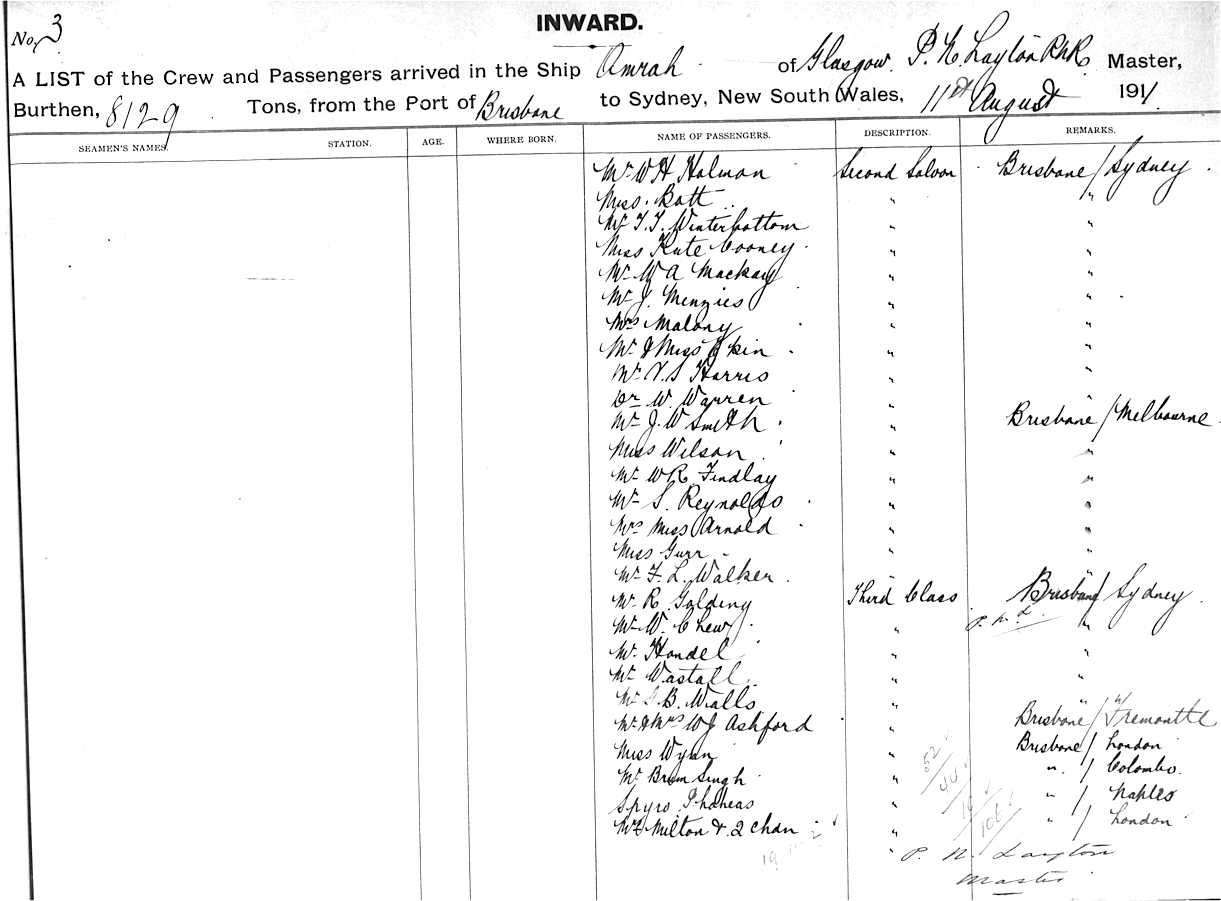 No. 3
INWARD.
A LIST of the Crew and Passengers arrived in the Ship Omrah of Glasgow. P. N. Layton RNR Master,
Burthen, 8129 Tons, from the Port of Brisbane to Sydney, New South Wales, 11th August 1911.
SEAMEN'S NAMES. STATION. AGE. WHERE BORN. NAME OF PASSENGERS. DESCRIPTION. REMARKS.
Mr W H Holman Second Saloon Brisbane / Sydney
Miss Batt " "
Mr T. T. Winterbottom " "
Miss Kate Cooney " "
Mr W A Mackay " "
Mr J. Menzies " "
Mrs Malony " "
Mr & Miss " "
Mr V. S Harris " "
Dr W. Warren " "
Mr J. W Smith " Brisbane / Melbourne
Miss Wilson " "
Mr W R Findlay " "
Mr S. Reynolds " "
Mrs Miss Arnold " "
Miss Gurr " "
Mr F. L. Walker " "
Mr R. Golding Third Class Brisbane / Sydney
Mr W. Chew " P. N. L. "
Mr Handel " "
Mr Wastall " "
Mr B. Walls " "
Mr & Mrs W J Ashford " Brisbane / Fremantle
Miss Wynn " Brisbane / London
Mr Bram Singh " " / Colombo
Spyro " " / Naples
Milton & 2 chdn " " / London
52
44
10
106
19
2
" P. N. Layton
Master